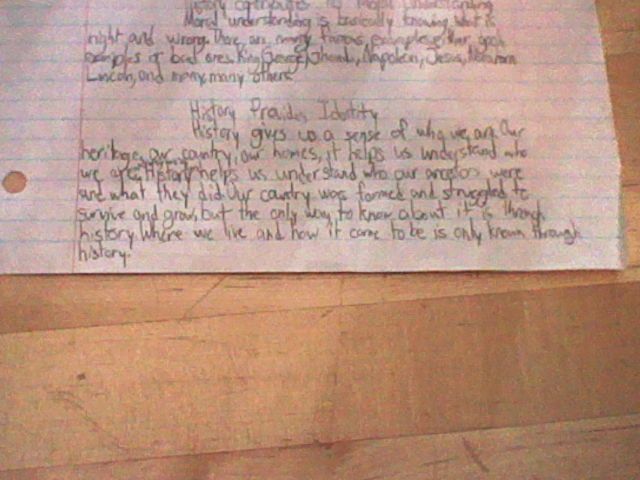 History contributes to Moral Understanding
Moral understanding is basically knowing what is
right and wrong. There are many famous examples of
examples of bad ones. King George, Napoleon, Jesus, Abraham
Lincoln, and many, many others.
History Provides Identity
History gives us a sense of who we are. Our
heritage, our country, our homes, it helps us understand who
we are. History helps us understand who our ancestors were
and what they did. Our country was formed and struggled to
survive and grow, but the only way to know about it is through
history. Where we live and how it came to be is only known through
history.